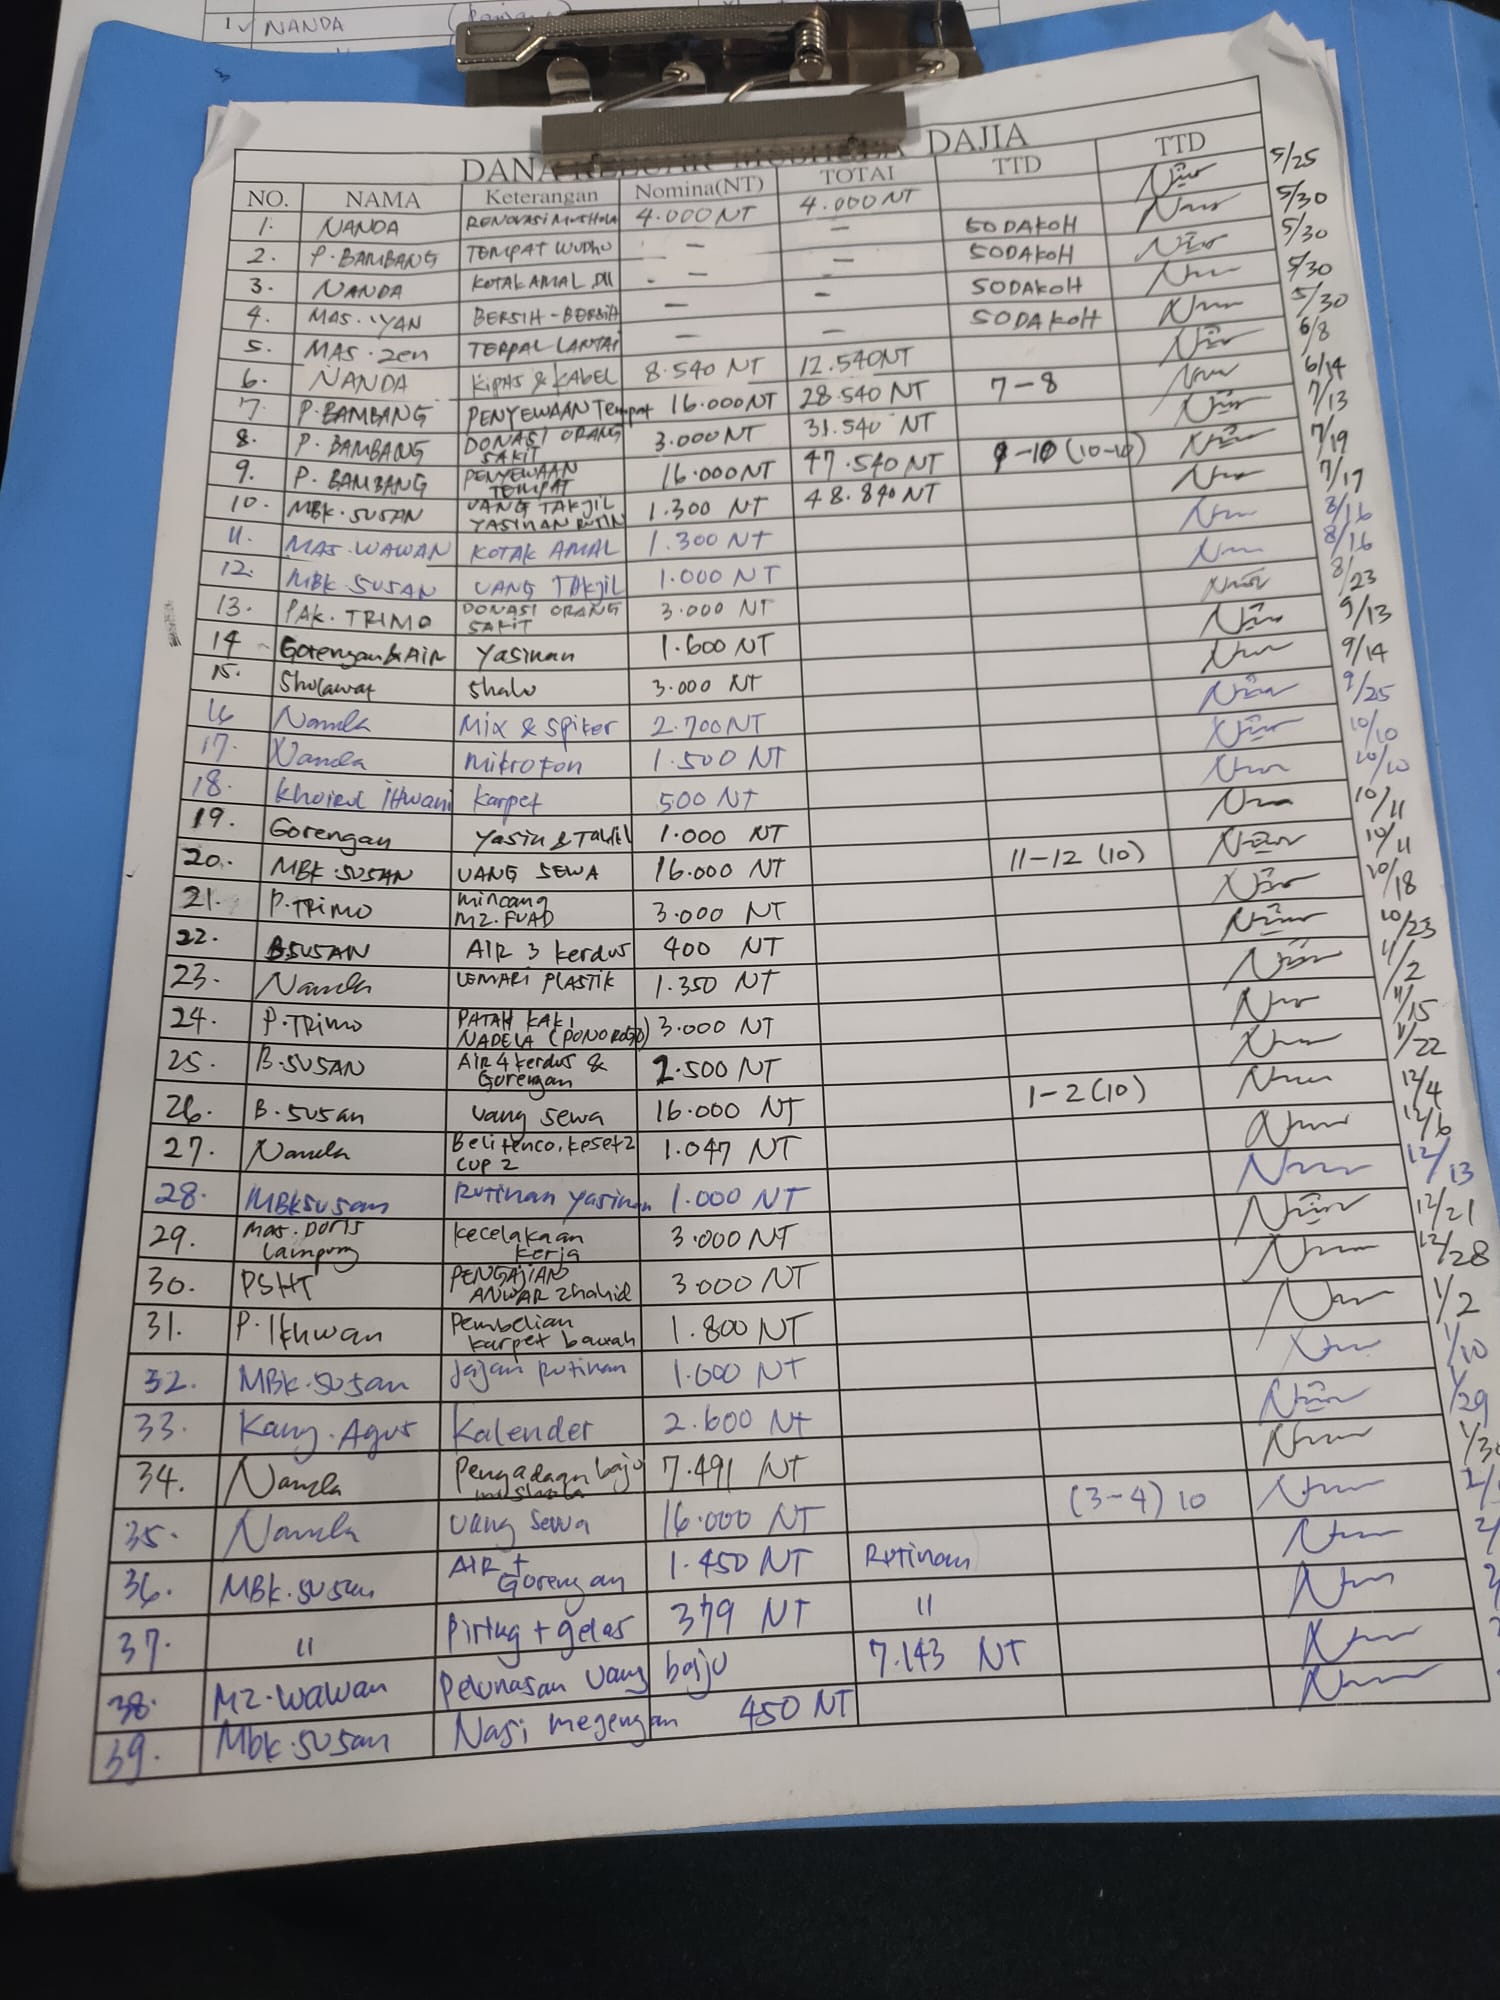 1. NANDA
DANA KELUAR MUSHOLA DAJIA
NO. NAMA Keterangan Nomina(NT) TOTAL TTD TTD
1. NANDA RENOVASI MUSHOLA 4.000 NT 4.000 NT 5/25
2. P. BAMBANG TEMPAT WUDHU - - SODAKOH 5/30
3. NANDA KOTAK AMAL DLL - - SODAKOH 5/30
4. MAS. IYAN BERSIH-BERSIH - - SODAKOH 5/30
5. MAS. Zen TERPAL LANTAI - - SODAKOH 5/30
6. NANDA KIPAS & KABEL 8.540 NT 12.540 NT 6/8
7. P. BAMBANG PENYEWAAN Tempat 16.000 NT 28.540 NT 7-8 6/14
8. P. BAMBANG DONASI ORANG SAKIT 3.000 NT 31.540 NT 7/13
9. P. BAMBANG PENYEWAAN TEMPAT 16.000 NT 47.540 NT 9-10 (10-10) 7/19
10. MBK. SUSAN UANG TAKJIL YASINAN RUTIN 1.300 NT 48.840 NT 7/17
11. MAS. WAWAN KOTAK AMAL 1.300 NT 8/16
12. MBK SUSAN UANG TAKJIL 1.000 NT 8/16
13. PAK. TRIMO DONASI ORANG SAKIT 3.000 NT 8/23
14 Gorengan & AIR Yasinan 1.600 NT 9/13
15. Sholawat Shalu 3.000 NT 9/14
16 Nanda Mix & Spiker 2.700 NT 9/25
17. Nanda Mikrofon 1.500 NT 10/10
18. Khoirul Ikhwani Karpet 500 NT 10/10
19. Gorengan Yasin & Tahlil 1.000 NT 10/11
20. MBK. SUSAN UANG SEWA 16.000 NT 11-12 (10) 10/11
21. P. TRIMO mincang MZ. FUAD 3.000 NT 10/18
22. B SUSAN AIR 3 kerdus 400 NT 10/23
23. Nanda LEMARI PLASTIK 1.350 NT 11/2
24. P. TRIMO PATAH KAKI NADELA (PONOROGO) 3.000 NT 11/15
25. B. SUSAN AIR 4 kerdus & Gorengan 2.500 NT 11/22
26. B. Susan Uang sewa 16.000 NT 1-2 (10) 12/4
27. Nanda Beli tenco, keset 2 cup 2 1.047 NT 12/6
28. MBK Susan Rutinan yasinan 1.000 NT 12/13
29. Mas. Doris Lampung kecelakaan kerja 3.000 NT 12/21
30. PSHT PENGAJIAN ANWAR Zhahid 3.000 NT 12/28
31. P. Ikhwan Pembelian karpet bawah 1.800 NT 1/2
32. MBK. Susan Jajan Rutinan 1.000 NT 1/10
33. Kang. Agus Kalender 2.600 Nt 1/29
34. Nanda Pengadaan baju mushola 7.491 NT
35. Nanda Uang sewa 16.000 NT (3-4) 10
36. MBK. Susan AIR + Gorengan 1.450 NT Rutinan
37. 11 Piring + gelas 379 NT 11
38. MZ. Wawan Pelunasan Uang baju 7.143 NT
39. Mbk. Susan Nasi megengan 450 NT